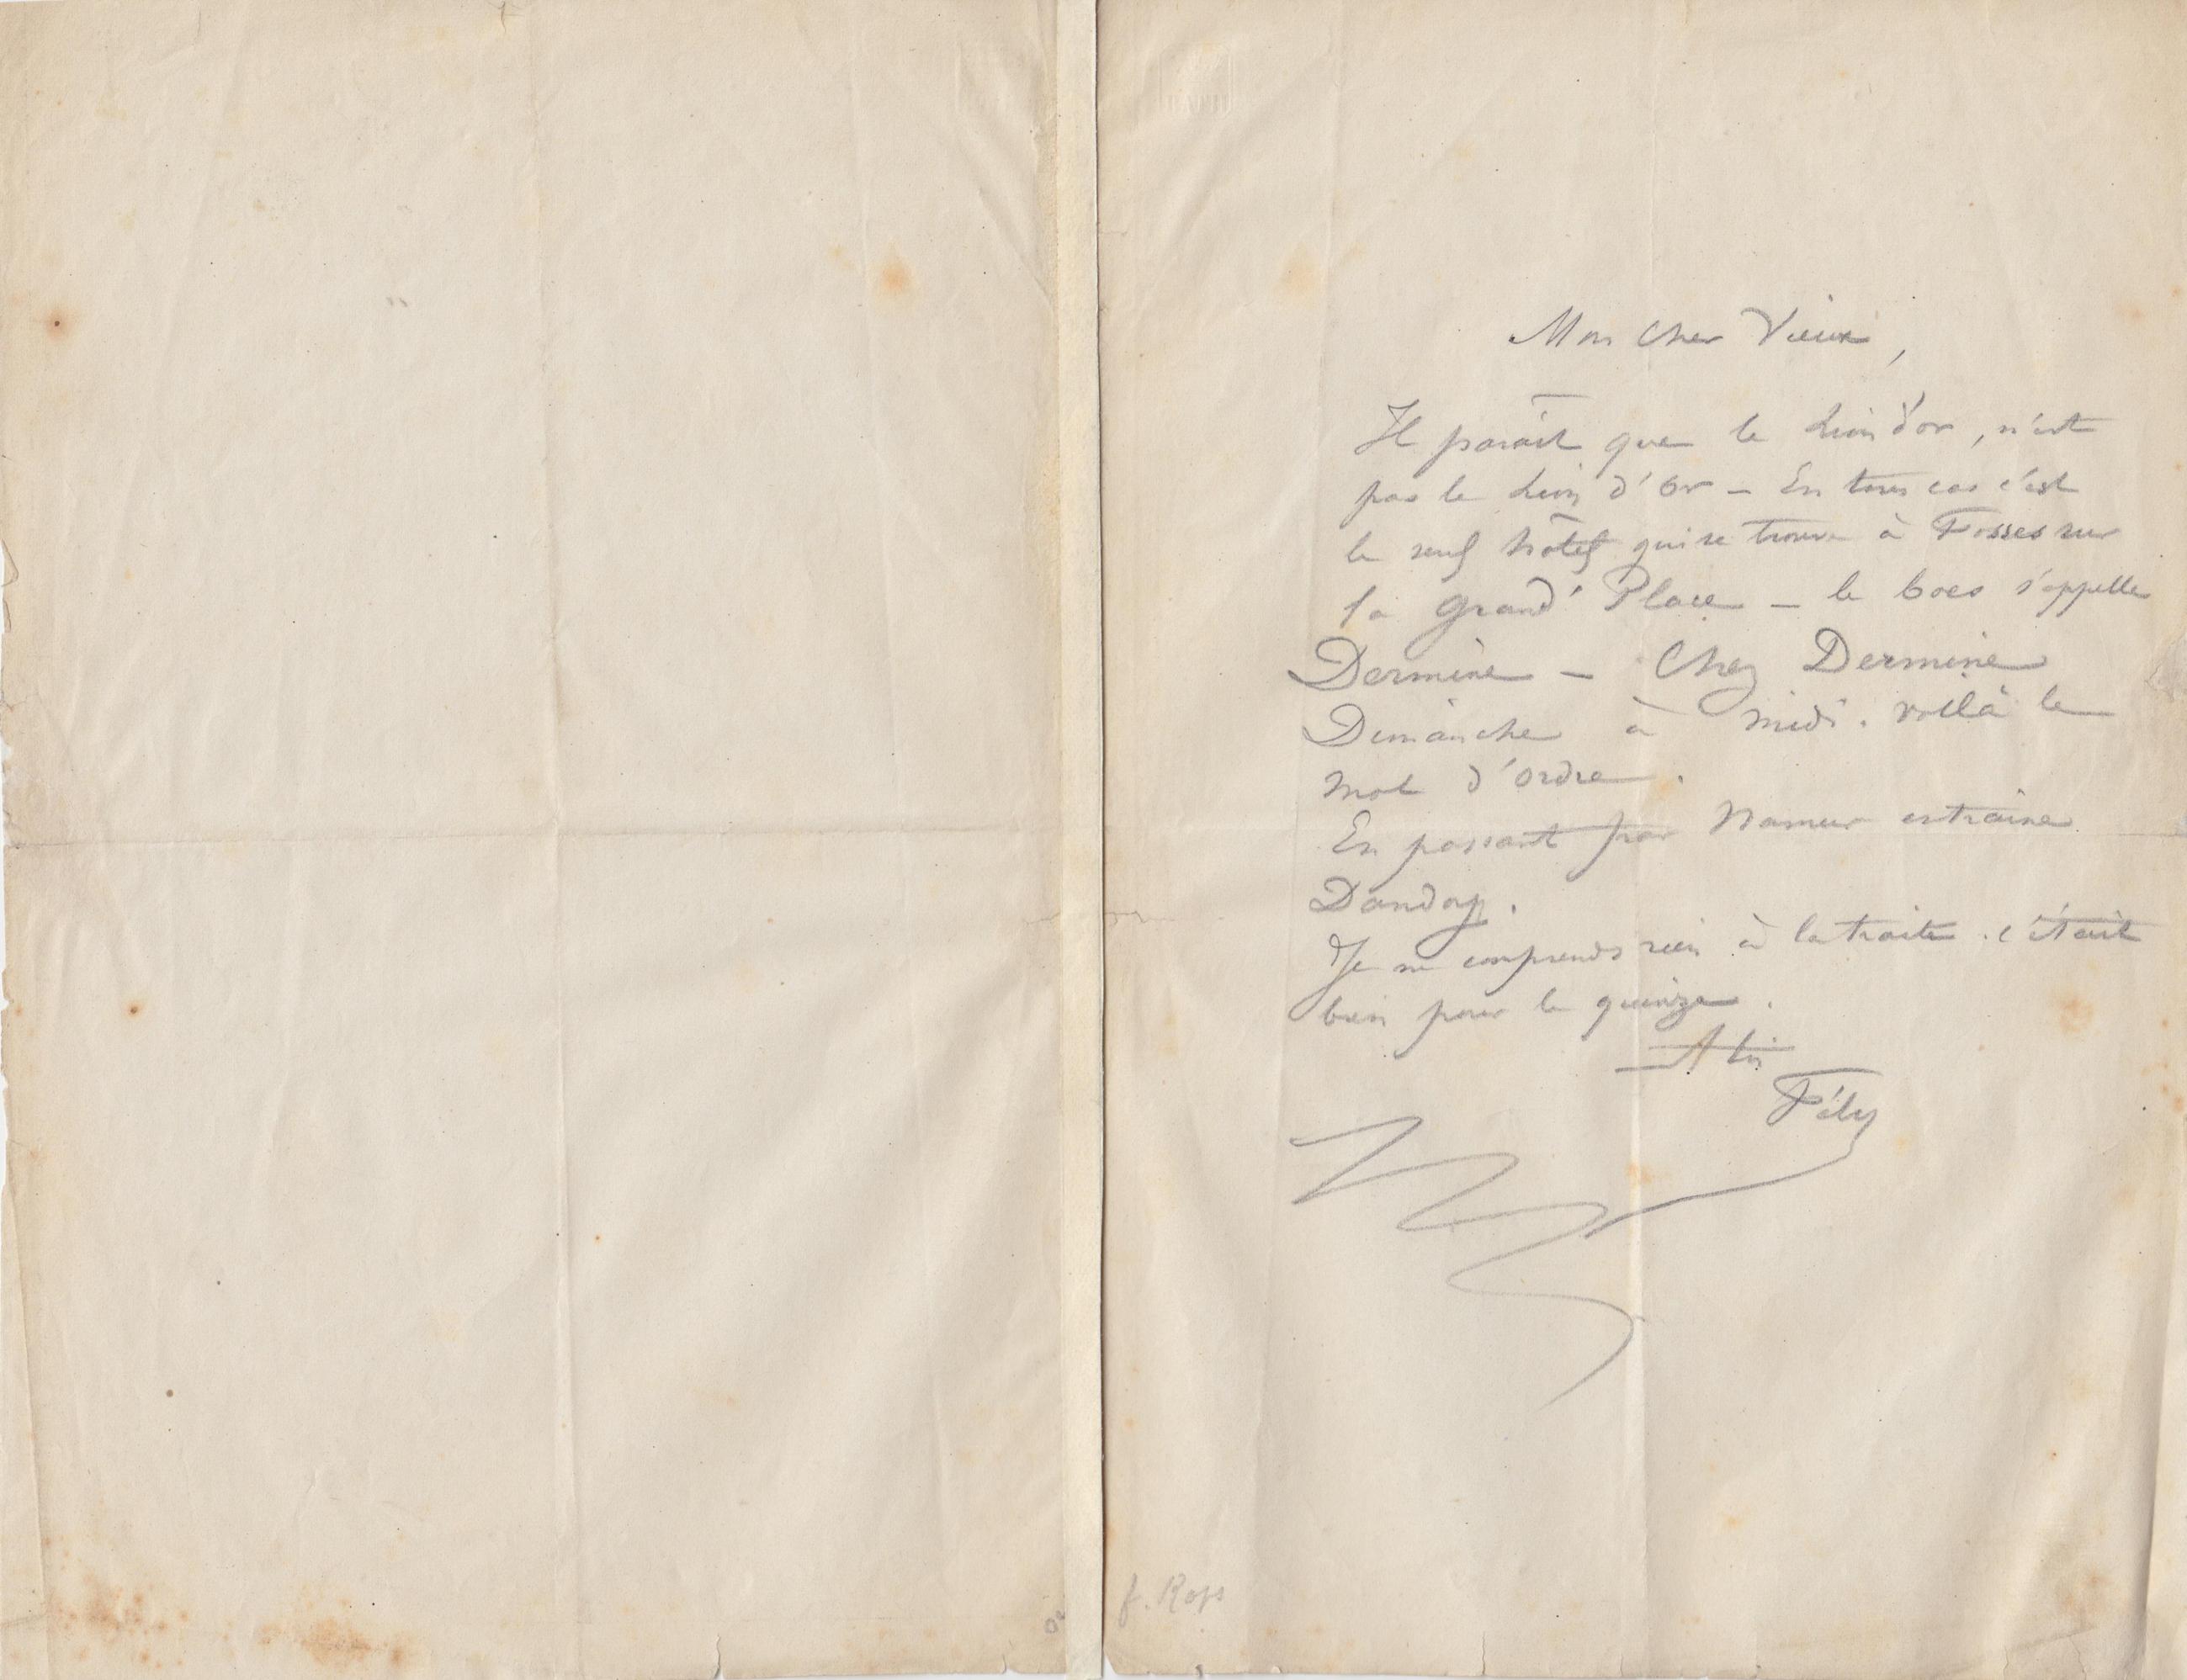 Mon cher Vieux,
Il paraît que le Lion d'or, n'est
pas le Lion d'Or – En tous cas c'est
le seul hôtel qui se trouve à Fosses sur
la Grand' Place – le boes s'appelle
Dermine – Chez Dermine
Dimanche à midi. voilà le
mot d'ordre.
En passant par Namur entraine
Dandoy.
Je ne comprends rien à la traite. c'était
bien pour le quinze.
A toi
Fély
f. Rops